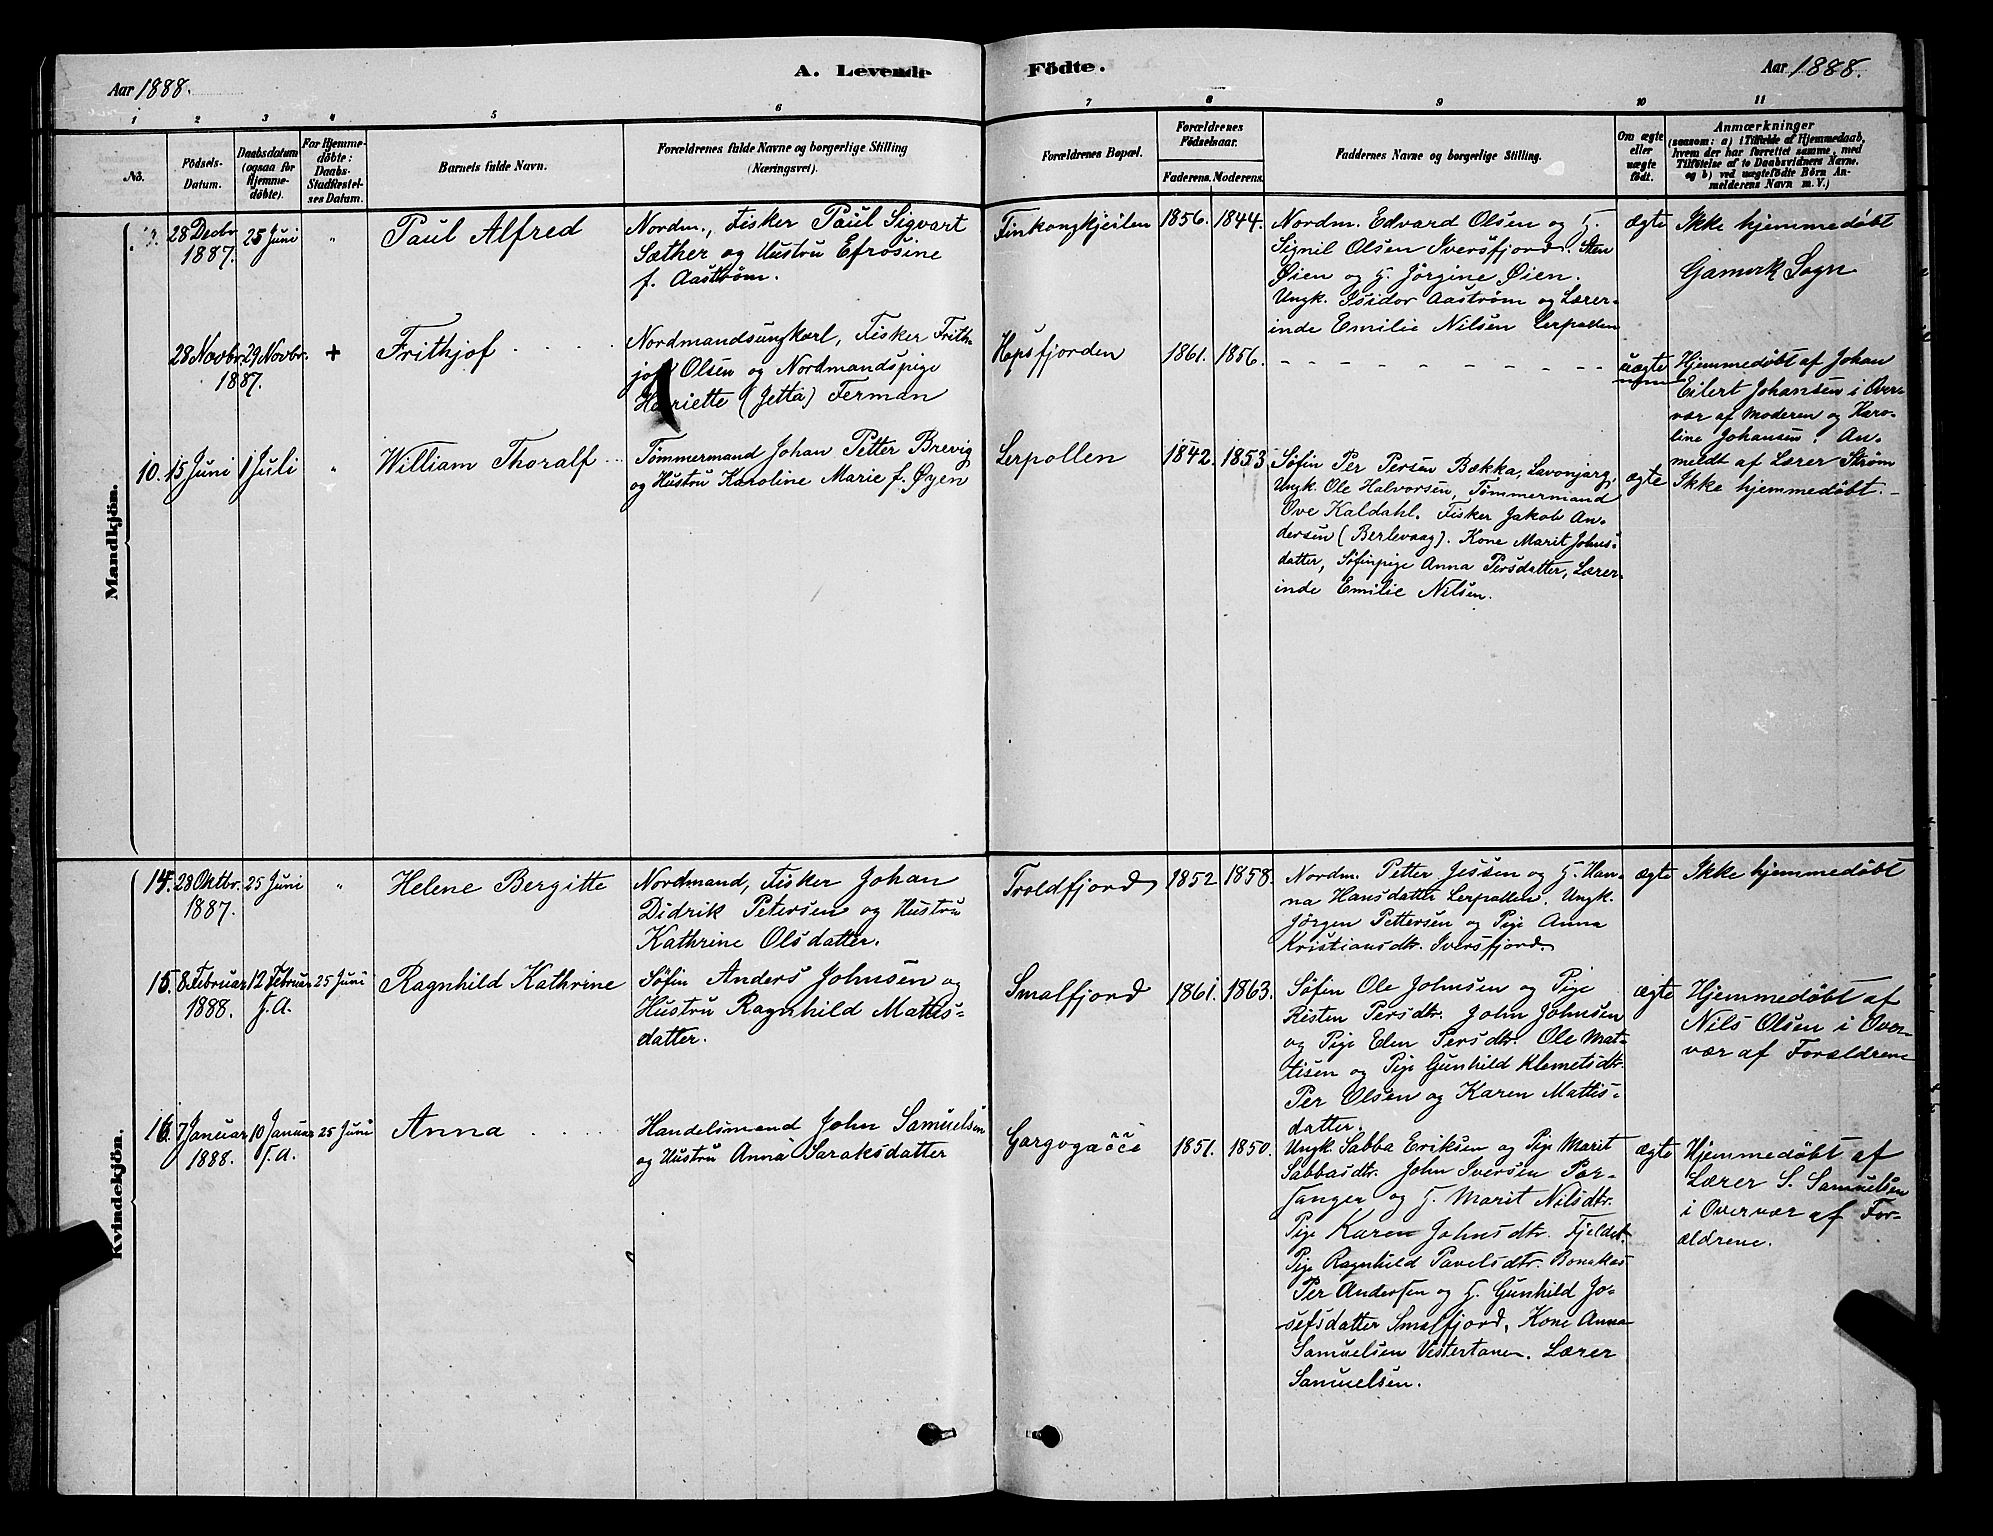 A. Levende Födte.
Aar 1888.
Aar 1888.
1 2 3 4 5 6 7 8 9 10 11
No.
Födsels-
Datum.
Daabsdatum
(ogsaa for
Hjemme-
döbte).
For Hjemme-
döbte:
Daabs-
Stadfæstel-
ses Datum.
Barnets fulde Navn.
Forældrenes fulde Navne og borgerlige Stilling
(Næringsvei).
Forældrenes Bopæl.
Forældrenes
Födselsaar.
Faderens. Moderens.
Faddernes Navne og borgerlige Stilling.
Om ægte
eller
uægte
födt.
Anmærkninger
(saasom: a) i Tilfælde af Hjemmedaab,
hvem der har forrettet samme, med
Tilföielse af to Daabsvidners Navne.
og b) ved uægtefödte Börn An-
melderens Navn m. V.)
Mandkjön.
28 Decbr
1887.
25 Juni
"
Paul Alfred
Nordm., Fisker Paul Sigvart
Sæther og Hustru Efrosine
f. Aaström.
Finkongkjeilen
1856.
1844.
Nordm. Edvard Olsen og H.
Signil Olsen Iversfjord. Sten
Øien og H. Jörgine Øien.
Ungk. Isidor Aaström og Lærer-
inde Emilie Nilsen Lerpollen
ægte
Ikke hjemmedøbt
Gamvik Sogn
28 Novbr.
1887.
29 Novbr.
+
Frithjof
Nordmandsungkarl, Fisker Frith-
jof Olsen og Nordmandspige
Henriette (Jetta) Ferman
Hopsfjorden
1861.
1856.
uægte
Hjemmedøbt af Johan
Eilert Johansen i Over-
vær af Moderen og Karo-
line Johansen. An-
meldt af Lærer Strøm
10.
15 Juni
1 Juli
"
William Thoralf
Tømmermand Johan Petter Brevig
og Hustru Karoline Marie f. Øyen
Lerpollen
1842.
1853
Søfin Per Persen Bækka, Lavonjarg,
Ungk. Ole Halvorsen, Tømmermand
Ove Kaldahl. Fisker Jakob An-
dersen (Berlevaag). Kone Marit Johns-
datter, Søfinpige Anna Persdatter, Lærer-
inde Emilie Nilsen.
ægte
Ikke hjemmedøbt.
Kvindekjön.
14.
28 Oktbr.
1887.
25 Juni
"
Helene Bergitte
Nordmand, Fisker Johan
Didrik Petersen og Hustru
Kathrine Olsdatter.
Troldfjord
1852
1858.
Nordm. Petter Jessen og H. Han-
na Hansdatter Lerpollen. Ungk.
Jörgen Pettersen og Pige Anna
Kristiansdtr. Iversfjord.
ægte
Ikke hjemmedøbt
15.
8 Februar
1888.
12 Februar
f. A.
25 Juni
Ragnhild Kathrine
Søfin Anders Johnsen og
Hustru Ragnhild Mattis-
datter.
Smalfjord
1861.
1863.
Søfin Ole Johnsen og Pige
Risten Persdtr. John Johnsen
og Pige Elen Persdtr. Ole Mat-
tisen og Pige Gunhild Klemetsdtr.
Per Olsen og Karen Mattis-
datter.
ægte
Hjemmedøbt af
Nils Olsen i Over-
vær af Forældrene
16.
7 Januar
1888.
10 Januar
f. A.
25 Juni
Anna
Handelsmand John Samuelsen
og Hustru Anna Saraksdatter
Gargogačče
1851.
1850.
Ungk. Sabba Eriksen og Pige Marit
Sabbasdtr. John Iversen Por-
sanger og H. Marit Nilsdtr.
Pige Karen Johnsdtr. Fjeldet.
Pige Ragnhild Pavelsdtr. Bonakas
Per Andersen og H. Gunhild Jo-
sefsdatter Smalfjord, Kone Anna
Samuelsen Vestertanen. Lærer
Samuelsen.
ægte
Hjemmedøbt af
Lærer S. Samuelsen
i Overvær af For-
ældrene.